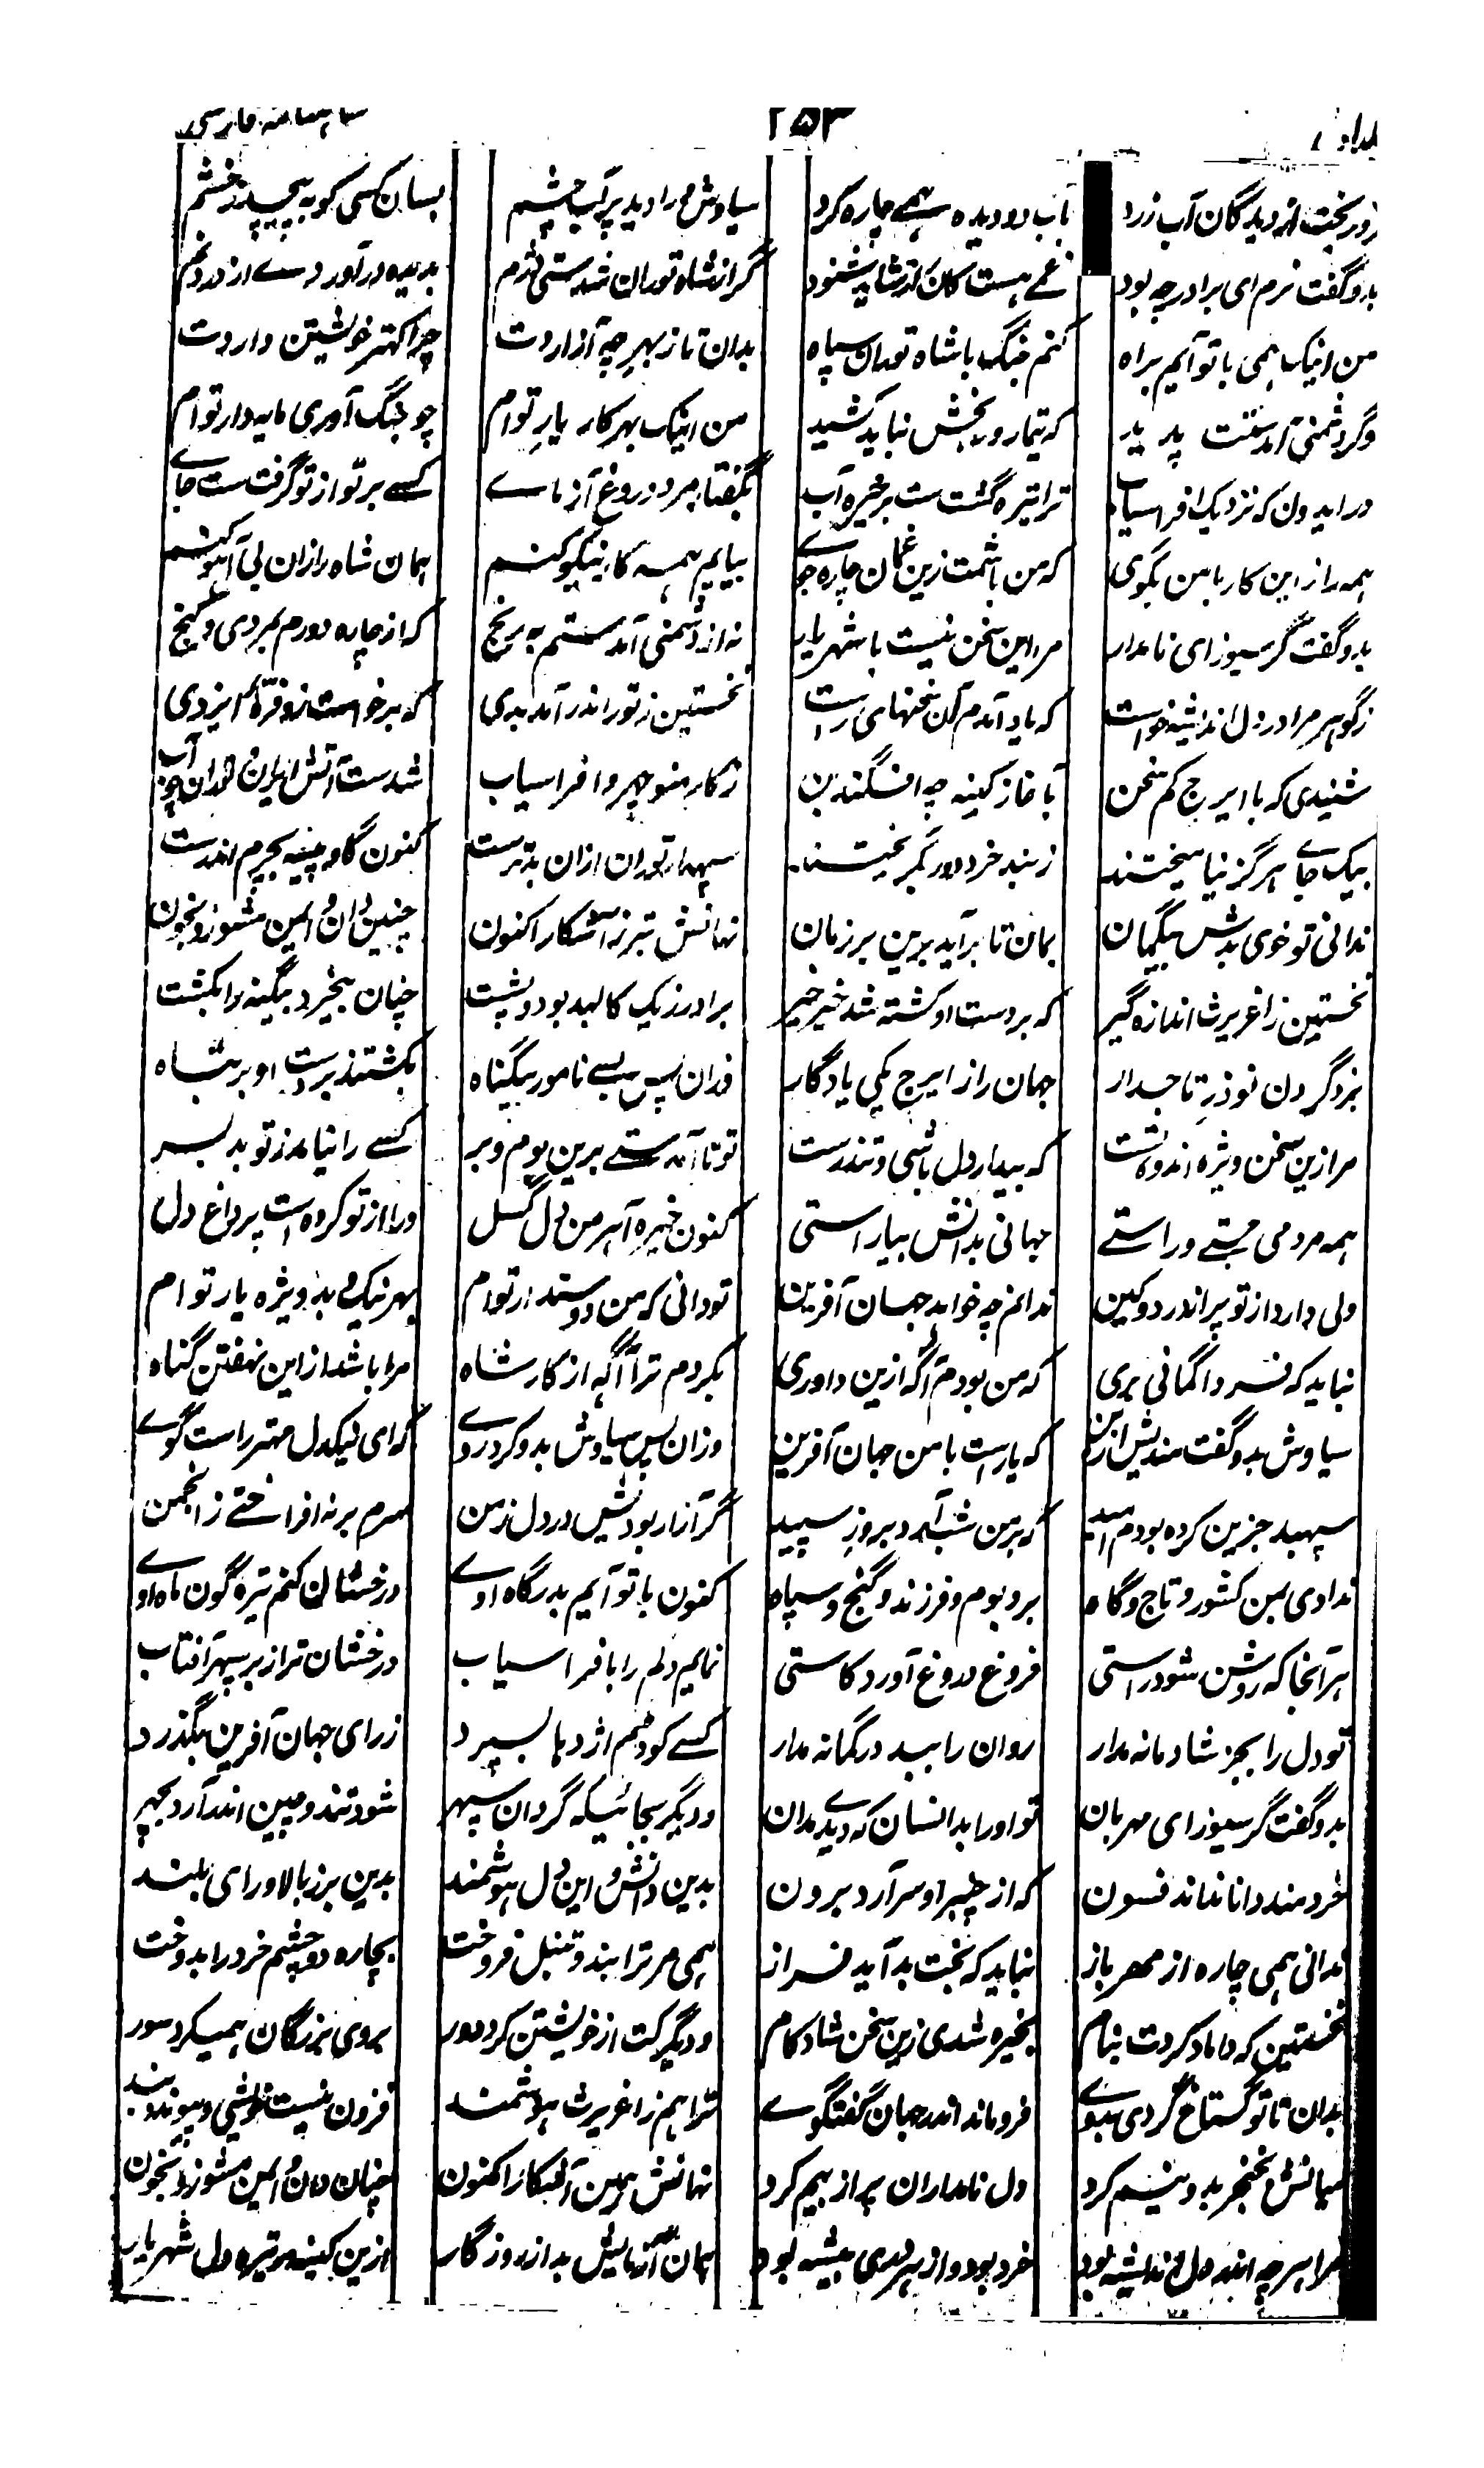 ۲۵۳ شاهنامه فارسی
فرو ریخت از دیدگان آب زرد بآب دو دیده همی چاره کرد سیاوش ورا دید پر آب چشم بسان کسی کو به پیچد ز خشم
بدو گفت نرم ای برادر چه بود غمے هست کان را نشاید شنود گر از شاه توران شدستی دژم بدیده در آوردے از درد نم
من اینک همی با تو آیم براه کنم جنگ با شاه توران سپاه بدان تا ز بهر چه آزاردت چرا کهتر خویشتن داردت
وگر دشمنی آمدستت پدید که تیمار و رنجش نباید کشید من اینک بهر کار یار توام چو جنگ آوری مایه دار توام
ور ایدون که نزدیک افراسیاب ترا تیره گشت ست بر خیره آب بگفتار مرد دروغ آزماے کسے برتر از تو گرفت ست جاے
همه راز این کار با من بگوی که من باشمت زین غمان چاره جوے بیایم همه کار نیکو کنم همان شاه را زان بی آهو کنم
بدو گفت گرسیوز ای نامدار مرا این سخن نیست با شهریار نه از دشمنی آمدستم به رنج که از چاره دورم بمردی و گنج
ز گوهر مرا در دل اندیشه خواست که یاد آمدم آن سخنهای راست نخستین ز تور اندر آمد بدی که برخواست زو فره ایزدی
شنیدی که با ایرج کم سخن بآغاز کینه چه افگند بن ز کار منوچهر و افراسیاب شدست آتش ایران و توران چو آب
بیک جاے هرگز نیامیختند ز بند خرد دور بگریختند سپهدار توران ازان بدترست کنون گاو پیسه بچرم اندرست
ندانی تو خوی بدش بیگمان بمان تا برآید برین بر زمان نهانش تبر زآشکار اکنون چنین دان و ایمن مشو زو بخون
نخستین ز اغریرث اندازه گیر که بر دست او کشته شد خیر خیر برادر ز یک کالبد بود و پشت چنان بیخرد بیگنه را بکشت
بزد گردن نوذر تاجدار جهان را ز ایرج یکی یادگار وزان پس بسے نامور بیگناه بکشتند بر دست او بر تباه
مرا زین سخن ویژه اندوه تست که بیدار دل باشی و تندرست تو تا آمدستے برین بوم و بر کسے را نیامد ز تو بد بسر
همه مردمی جستے و راستے جهانی بدانش بیاراستی کنون خیره آهرمن دل گسل ورا از تو کرده است پر داغ دل
دلی دارد از تو پر از درد و کین ندانم چه خواهد جهان آفرین تو دانی که من دوستدار توام بهر نیک و بد ویژه یار توام
نباید که فردا گمانی بری که من بودم آگه ازین داوری بکردم ترا آگه از کار شاه مرا باشد از این نهفتن گناه
سیاوش بدو گفت مندیش ازین که یار است با من جهان آفرین وزان پس سیاوش بدو کرد روے که ای نیکدل مهتر راست گوے
سپهبد جزین کرده بودم امید که بر من شب آرد بروز سپید گر آزار بودیش در دل ز من سرم بر نه افراختے ز انجمن
ندادی بمن کشور و تاج و گاه بر و بوم و فرزند و گنج و سپاه کنون با تو آیم بدرگاه اوے درخشان کنم تیره گون ماه اوے
هر آنجا که روشن شود راستی فروغ دروغ آورد کاستی نمایم دلم را بافراسیاب درخشان تر از بر سپهر آفتاب
تو دل را بجز شادمانه مدار روان را ببد در گمانه مدار کسے کو دم اژدها بسپرد ز رای جهان آفرین بگذرد
بدو گفت گرسیوز ای مهربان تو او را بدانسان که دیدے مدان و دیگر بجائیکه گردان سپهر شود تند و چین اندر آرد بچهر
خردمند دانا نداند فسون که از چنبر او سر آرد برون بدین دانش و این دل هوشمند بدین برز بالا و رای بلند
ندانی همی چاره از مهر باز نباید که بخت بد آید فراز همی مر ترا بند و تنبل فروخت بچاره دو چشم خرد را بدوخت
نخستین که داماد کردت بنام بخیره شدی زین سخن شاد کام و دیگر کت از خویشتن کرد دور بروی بزرگان همیکرد سور
بدان تا تو گستاخ گردی بدوے فروماند اندر جهان گفتگوے ترا هم ز اغریرث هوشمند فزون نیست خویشی و پیوند و بند
میانش بخنجر بدو نیم کرد دل نامداران پر از بیم کرد نهانش ببین آشکارا کنون چنان دان و ایمن مشو زو بخون
مرا هر چه اندر دل اندیشه بود خرد بود و از هر دری پیشه بود همان آزمایش بد از روزگار ازین کینه ور تیره دل شهریار